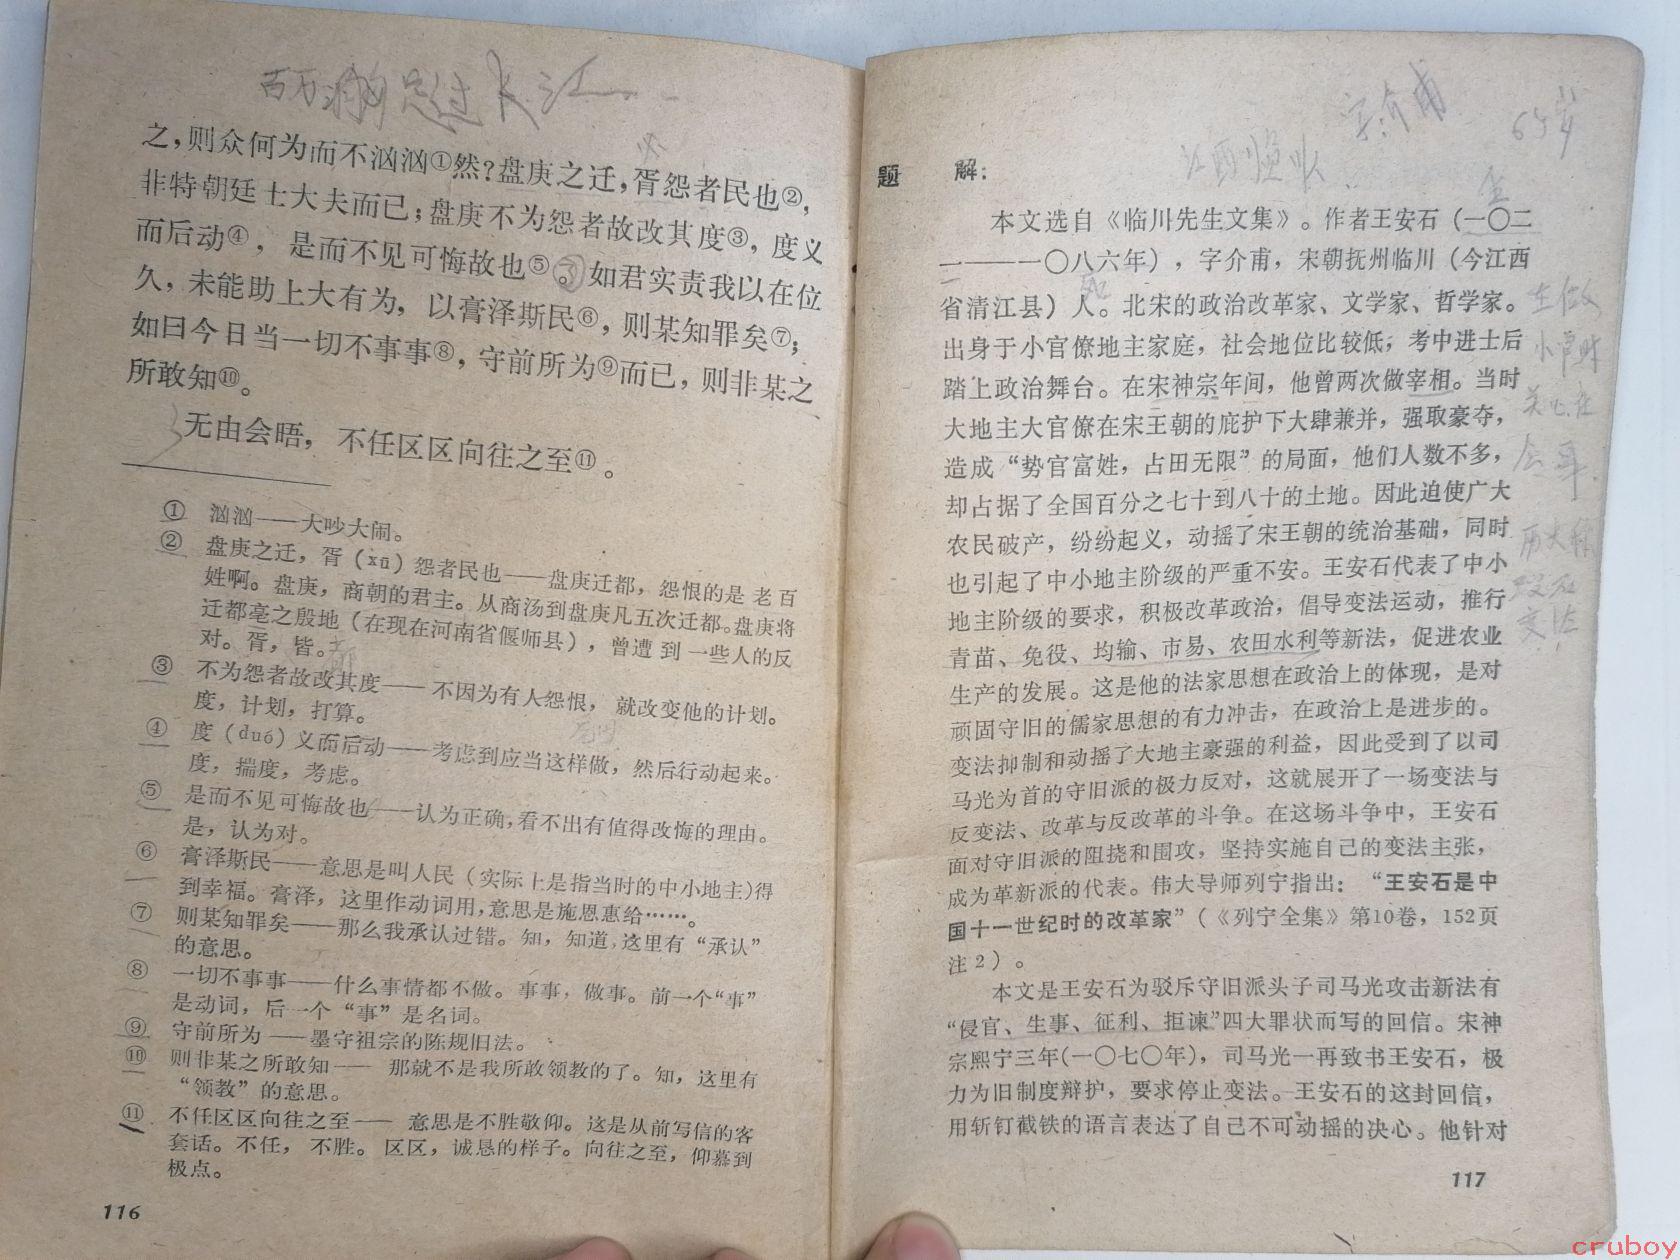 百万雄师过大江
之，则众何为而不汹汹①然？盘庚之迁，胥怨者民也②，
非特朝廷士大夫而已；盘庚不为怨者故改其度③，度义
而后动④，是而不见可悔故也⑤。如君实责我以在位
久，未能助上大有为，以膏泽斯民⑥，则某知罪矣⑦；
如曰今日当一切不事事⑧，守前所为⑨而已，则非某之
所敢知⑩。
无由会晤，不任区区向往之至⑪。
① 汹汹——大吵大闹。
② 盘庚之迁，胥（xū）怨者民也——盘庚迁都，怨恨的是老百
姓啊。盘庚，商朝的君主。从商汤到盘庚凡五次迁都。盘庚将
迁都亳之殷地（在现在河南省偃师县），曾遭到一些人的反
对。胥，皆。
都
③ 不为怨者故改其度——不因为有人怨恨，就改变他的计划。
度，计划，打算。
④ 度（duó）义而后动——考虑到应当这样做，然后行动起来。
度，揣度，考虑。
⑤ 是而不见可悔故也——认为正确，看不出有值得改悔的理由。
是，认为对。
⑥ 膏泽斯民——意思是叫人民（实际上是指当时的中小地主）得
到幸福。膏泽，这里作动词用，意思是施恩惠给……。
⑦ 则某知罪矣——那么我承认过错。知，知道，这里有“承认”
的意思。
⑧ 一切不事事——什么事情都不做。事事，做事。前一个“事”
是动词，后一个“事”是名词。
⑨ 守前所为——墨守祖宗的陈规旧法。
⑩ 则非某之所敢知——那就不是我所敢领教的了。知，这里有
“领教”的意思。
⑪ 不任区区向往之至——意思是不胜敬仰。这是从前写信的客
套话。不任，不胜。区区，诚恳的样子。向往之至，仰慕到
极点。
116
字介甫
65岁
江西临川
题 解：
本文选自《临川先生文集》。作者王安石（一〇二
一——一〇八六年），字介甫，宋朝抚州临川（今江西
省清江县）人。北宋的政治改革家、文学家、哲学家。
出身于小官僚地主家庭，社会地位比较低；考中进士后
踏上政治舞台。在宋神宗年间，他曾两次做宰相。当时
大地主大官僚在宋王朝的庇护下大肆兼并，强取豪夺，
造成“势官富姓，占田无限”的局面，他们人数不多，
却占据了全国百分之七十到八十的土地。因此迫使广大
农民破产，纷纷起义，动摇了宋王朝的统治基础，同时
也引起了中小地主阶级的严重不安。王安石代表了中小
地主阶级的要求，积极改革政治，倡导变法运动，推行
青苗、免役、均输、市易、农田水利等新法，促进农业
生产的发展。这是他的法家思想在政治上的体现，是对
顽固守旧的儒家思想的有力冲击，在政治上是进步的。
变法抑制和动摇了大地主豪强的利益，因此受到了以司
马光为首的守旧派的极力反对，这就展开了一场变法与
反变法、改革与反改革的斗争。在这场斗争中，王安石
面对守旧派的阻挠和围攻，坚持实施自己的变法主张，
成为革新派的代表。伟大导师列宁指出：“王安石是中
国十一世纪时的改革家”（《列宁全集》第10卷，152页
注2）。
本文是王安石为驳斥守旧派头子司马光攻击新法有
“侵官、生事、征利、拒谏”四大罪状而写的回信。宋神
宗熙宁三年（一〇七〇年），司马光一再致书王安石，极
力为旧制度辩护，要求停止变法。王安石的这封回信，
用斩钉截铁的语言表达了自己不可动摇的决心。他针对
117
cruboy